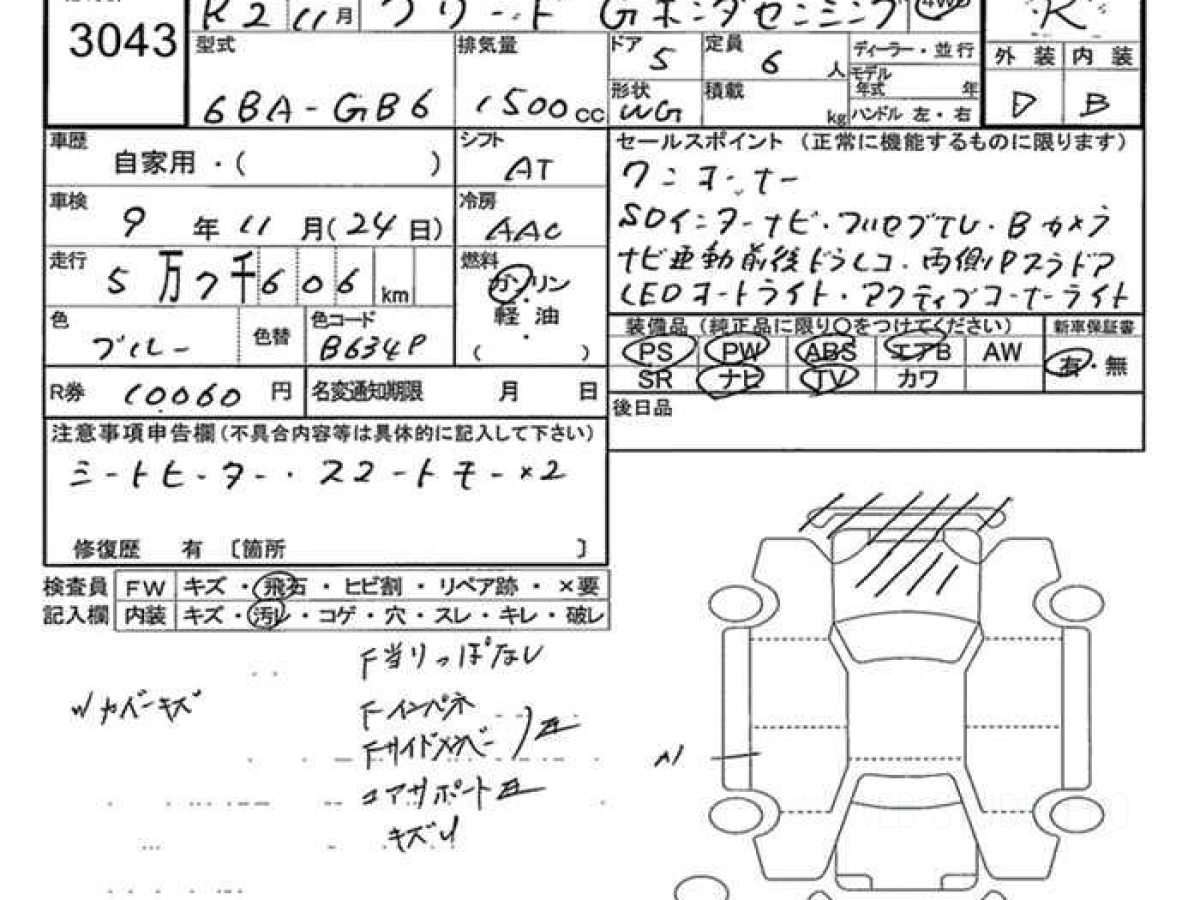 3043
R2 11月 フリード Gホンダセンシング 4WD
R
型式 排気量 ドア 5 定員 6 人 ディーラー・並行
外装 内装
モデル年式 年
6BA-GB6 1500cc 形状 WG 積載 kg ハンドル 左・右
D B
車歴 自家用・( )
シフト AT
セールスポイント (正常に機能するものに限ります)
ワンオーナー
車検 9年11月(24日)
冷房 AAC
SDインターナビ・フルセグTV・Bカメラ
走行 5万7千606km
燃料 ガソリン・軽油・( )
ナビ連動前後ドラレコ・両側Pスラドア
LEDオートライト・アクティブコーナーライト
色 ブルー 色替 色コード B634P
装備品 (純正品に限り○をつけてください) 新車保証書
PS PW ABS エアB AW 有・無
SR ナビ TV カワ
R券 10060円 名変通知期限 月 日
後日品
注意事項申告欄(不具合内容等は具体的に記入して下さい)
シートヒーター・スマートキー×2
修復歴 有 〔箇所 〕
検査員 FW キズ・飛石・ヒビ割・リペア跡・×要
記入欄 内装 キズ・汚レ・コゲ・穴・スレ・キレ・破レ
F当りっぱなし
Wカバーキズ
Fインパネ
Fサイドメンバー
コアサポート
キズU
A1